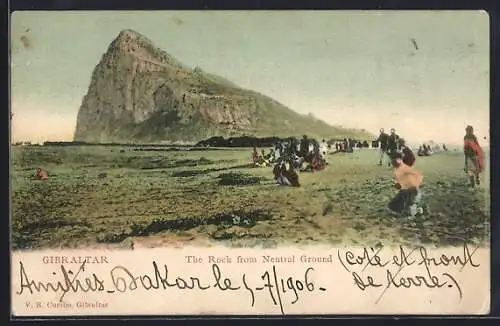 GIBRALTAR
The Rock from Neutral Ground
(Coté et front
de terre.)
Amitiés Dakar le 5/7/1906
V. B. Cumbo, Gibraltar